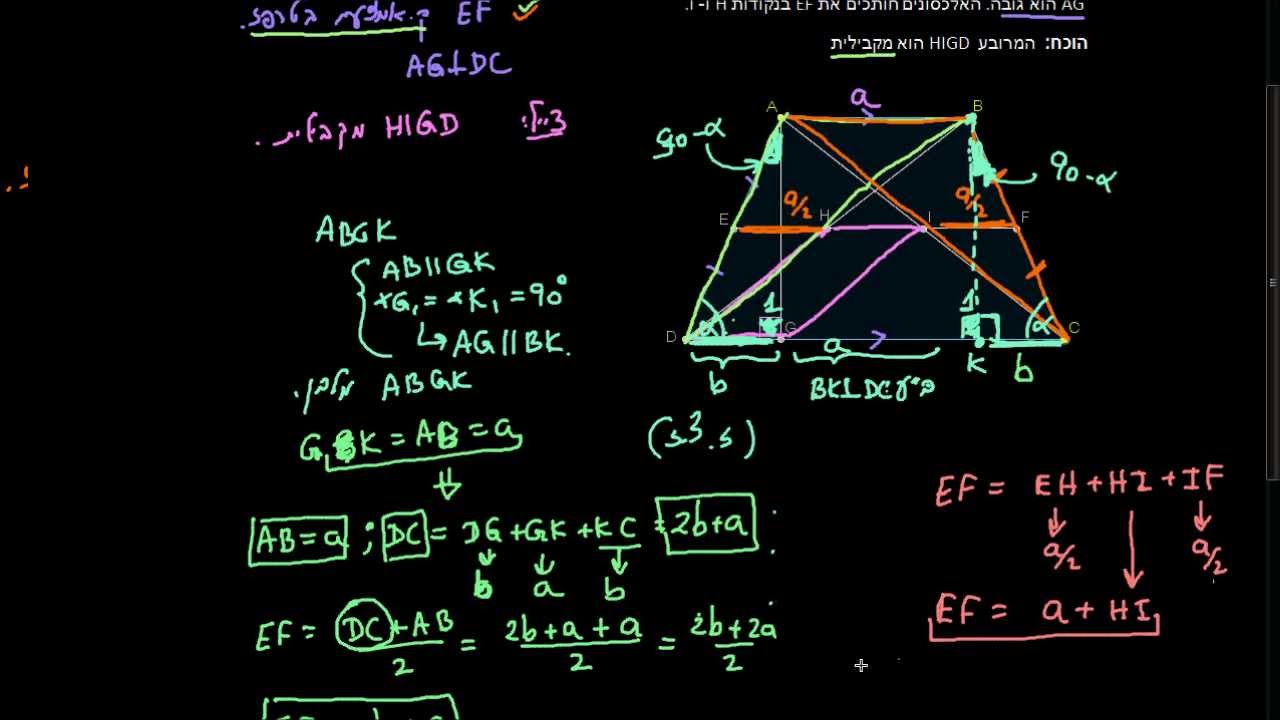 AG הוא גובה. האלכסונים חותכים את EF בנקודות H ו-I.
הוכח: המרובע HIGD הוא מקבילית
EF ק.אמצעים בטרפז.
AG⊥DC
צ"ל: HIGD מקבילית.
a
A
B
90-α
90-α
E
a/2
H
I
a/2
F
D
α
1
G
1
α
C
b
a
K
b
BK⊥DC
(ז.צ.ז)
ABGK
AB∥GK
∢G₁=∢K₁=90°
↳ AG∥BK.
ABGK מלבן.
GK=AB=a
⇓
AB=a ; DC = DG+GK+KC = 2b+a :
b a b
EF = DC+AB/2 = 2b+a+a/2 = 2b+2a/2
EF = EH+HI+IF
a/2 a/2
EF = a+HI